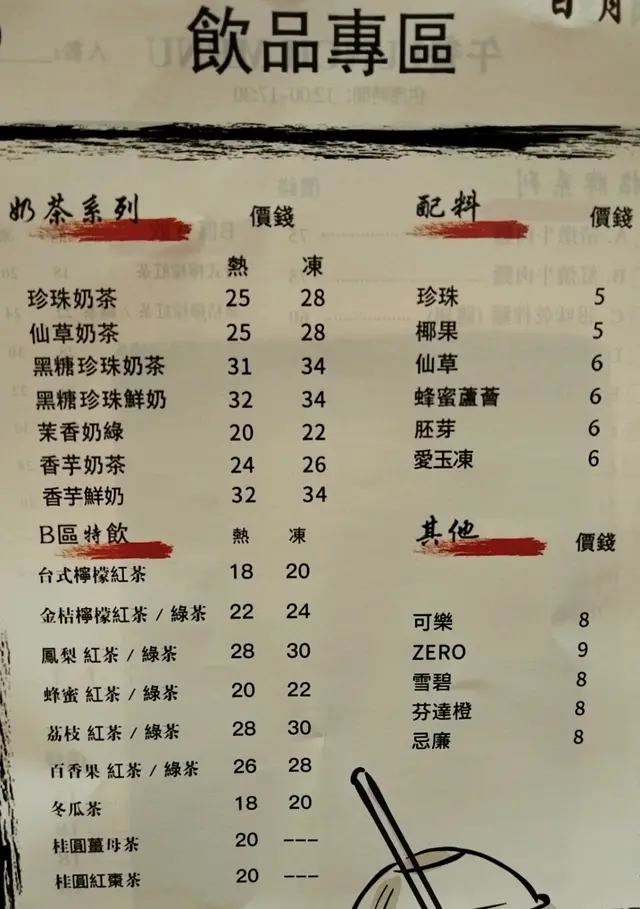 日月
飲品專區
奶茶系列 價錢
熱 凍
珍珠奶茶 25 28
仙草奶茶 25 28
黑糖珍珠奶茶 31 34
黑糖珍珠鮮奶 32 34
茉香奶綠 20 22
香芋奶茶 24 26
香芋鮮奶 32 34
B區特飲 熱 凍
台式檸檬紅茶 18 20
金桔檸檬紅茶 / 綠茶 22 24
鳳梨 紅茶 / 綠茶 28 30
蜂蜜 紅茶 / 綠茶 20 22
荔枝 紅茶 / 綠茶 28 30
百香果 紅茶 / 綠茶 26 28
冬瓜茶 18 20
桂圓薑母茶 20 ---
桂圓紅棗茶 20 ---
配料 價錢
珍珠 5
椰果 5
仙草 6
蜂蜜蘆薈 6
胚芽 6
愛玉凍 6
其他 價錢
可樂 8
ZERO 9
雪碧 8
芬達橙 8
忌廉 8